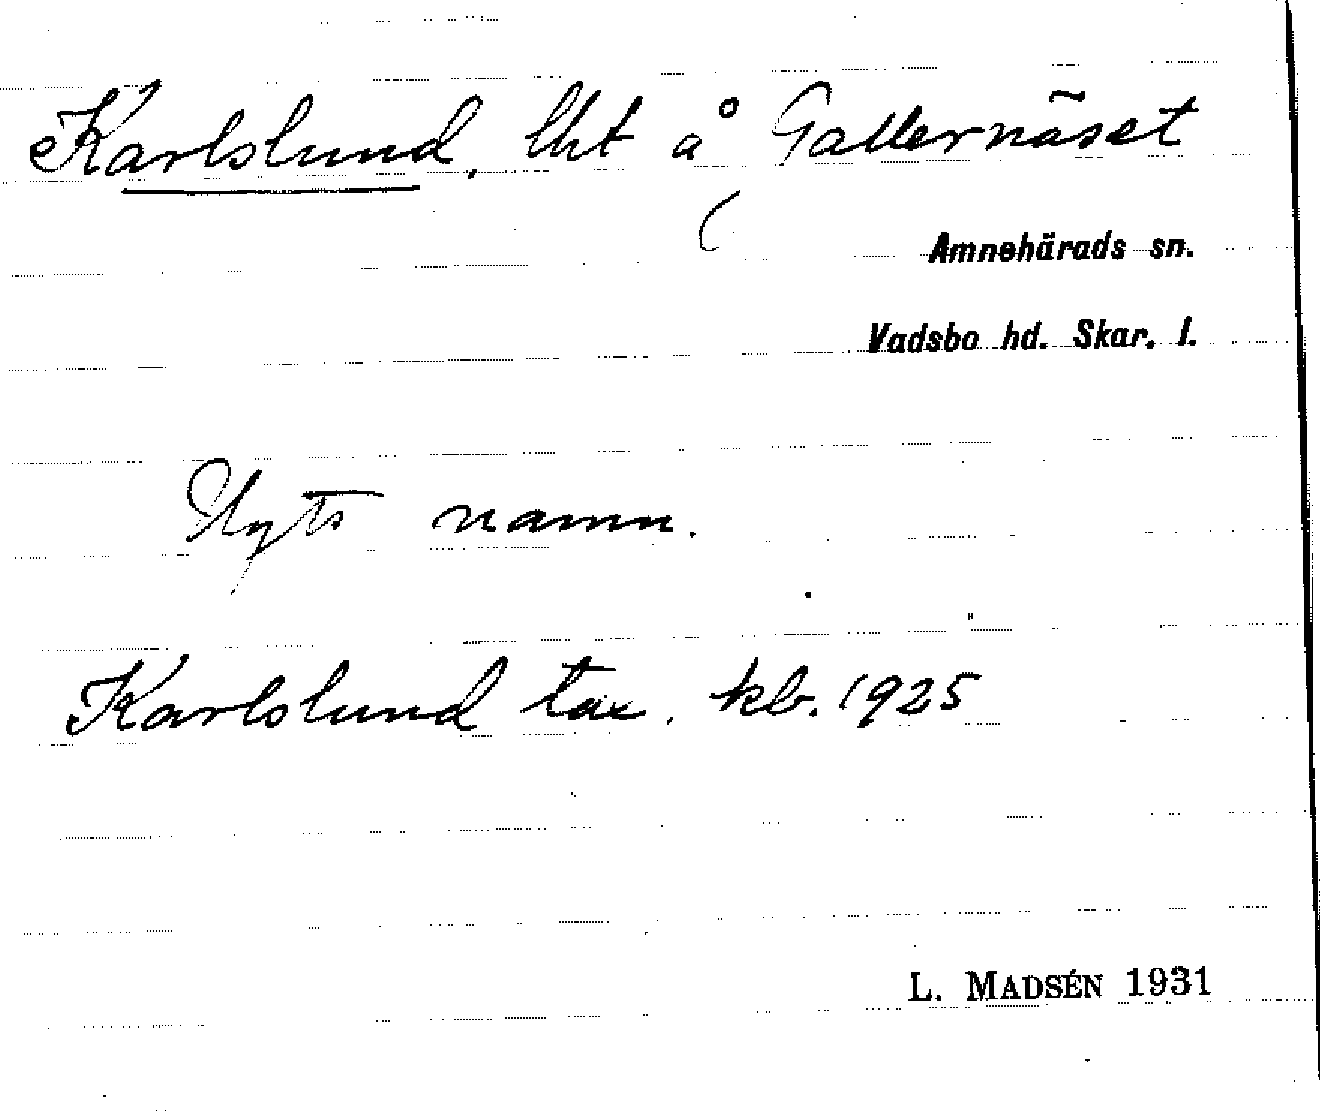 Karlslund, lht å Gallernäset
Amnehärads sn.
Vadsbo hd. Skar. l.
Nytt namn.
Karlslund tax. kb. 1925
L. MADSÉN 1931